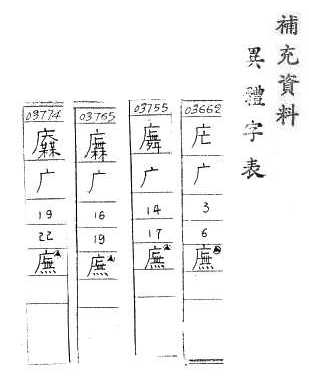 補充資料
異體字表
03662
广
3
6
廡
03755
广
14
17
廡
03765
广
16
19
廡
03774
广
19
22
廡